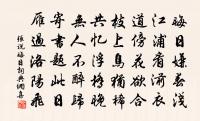 晦日嫌春淺
江浦看湔衣
道傍花欲合
枝上鳥猶稀
共憶浮橋晚
無人不醉歸
寄書題此日
雁過洛陽飛
張說晦日詞典網